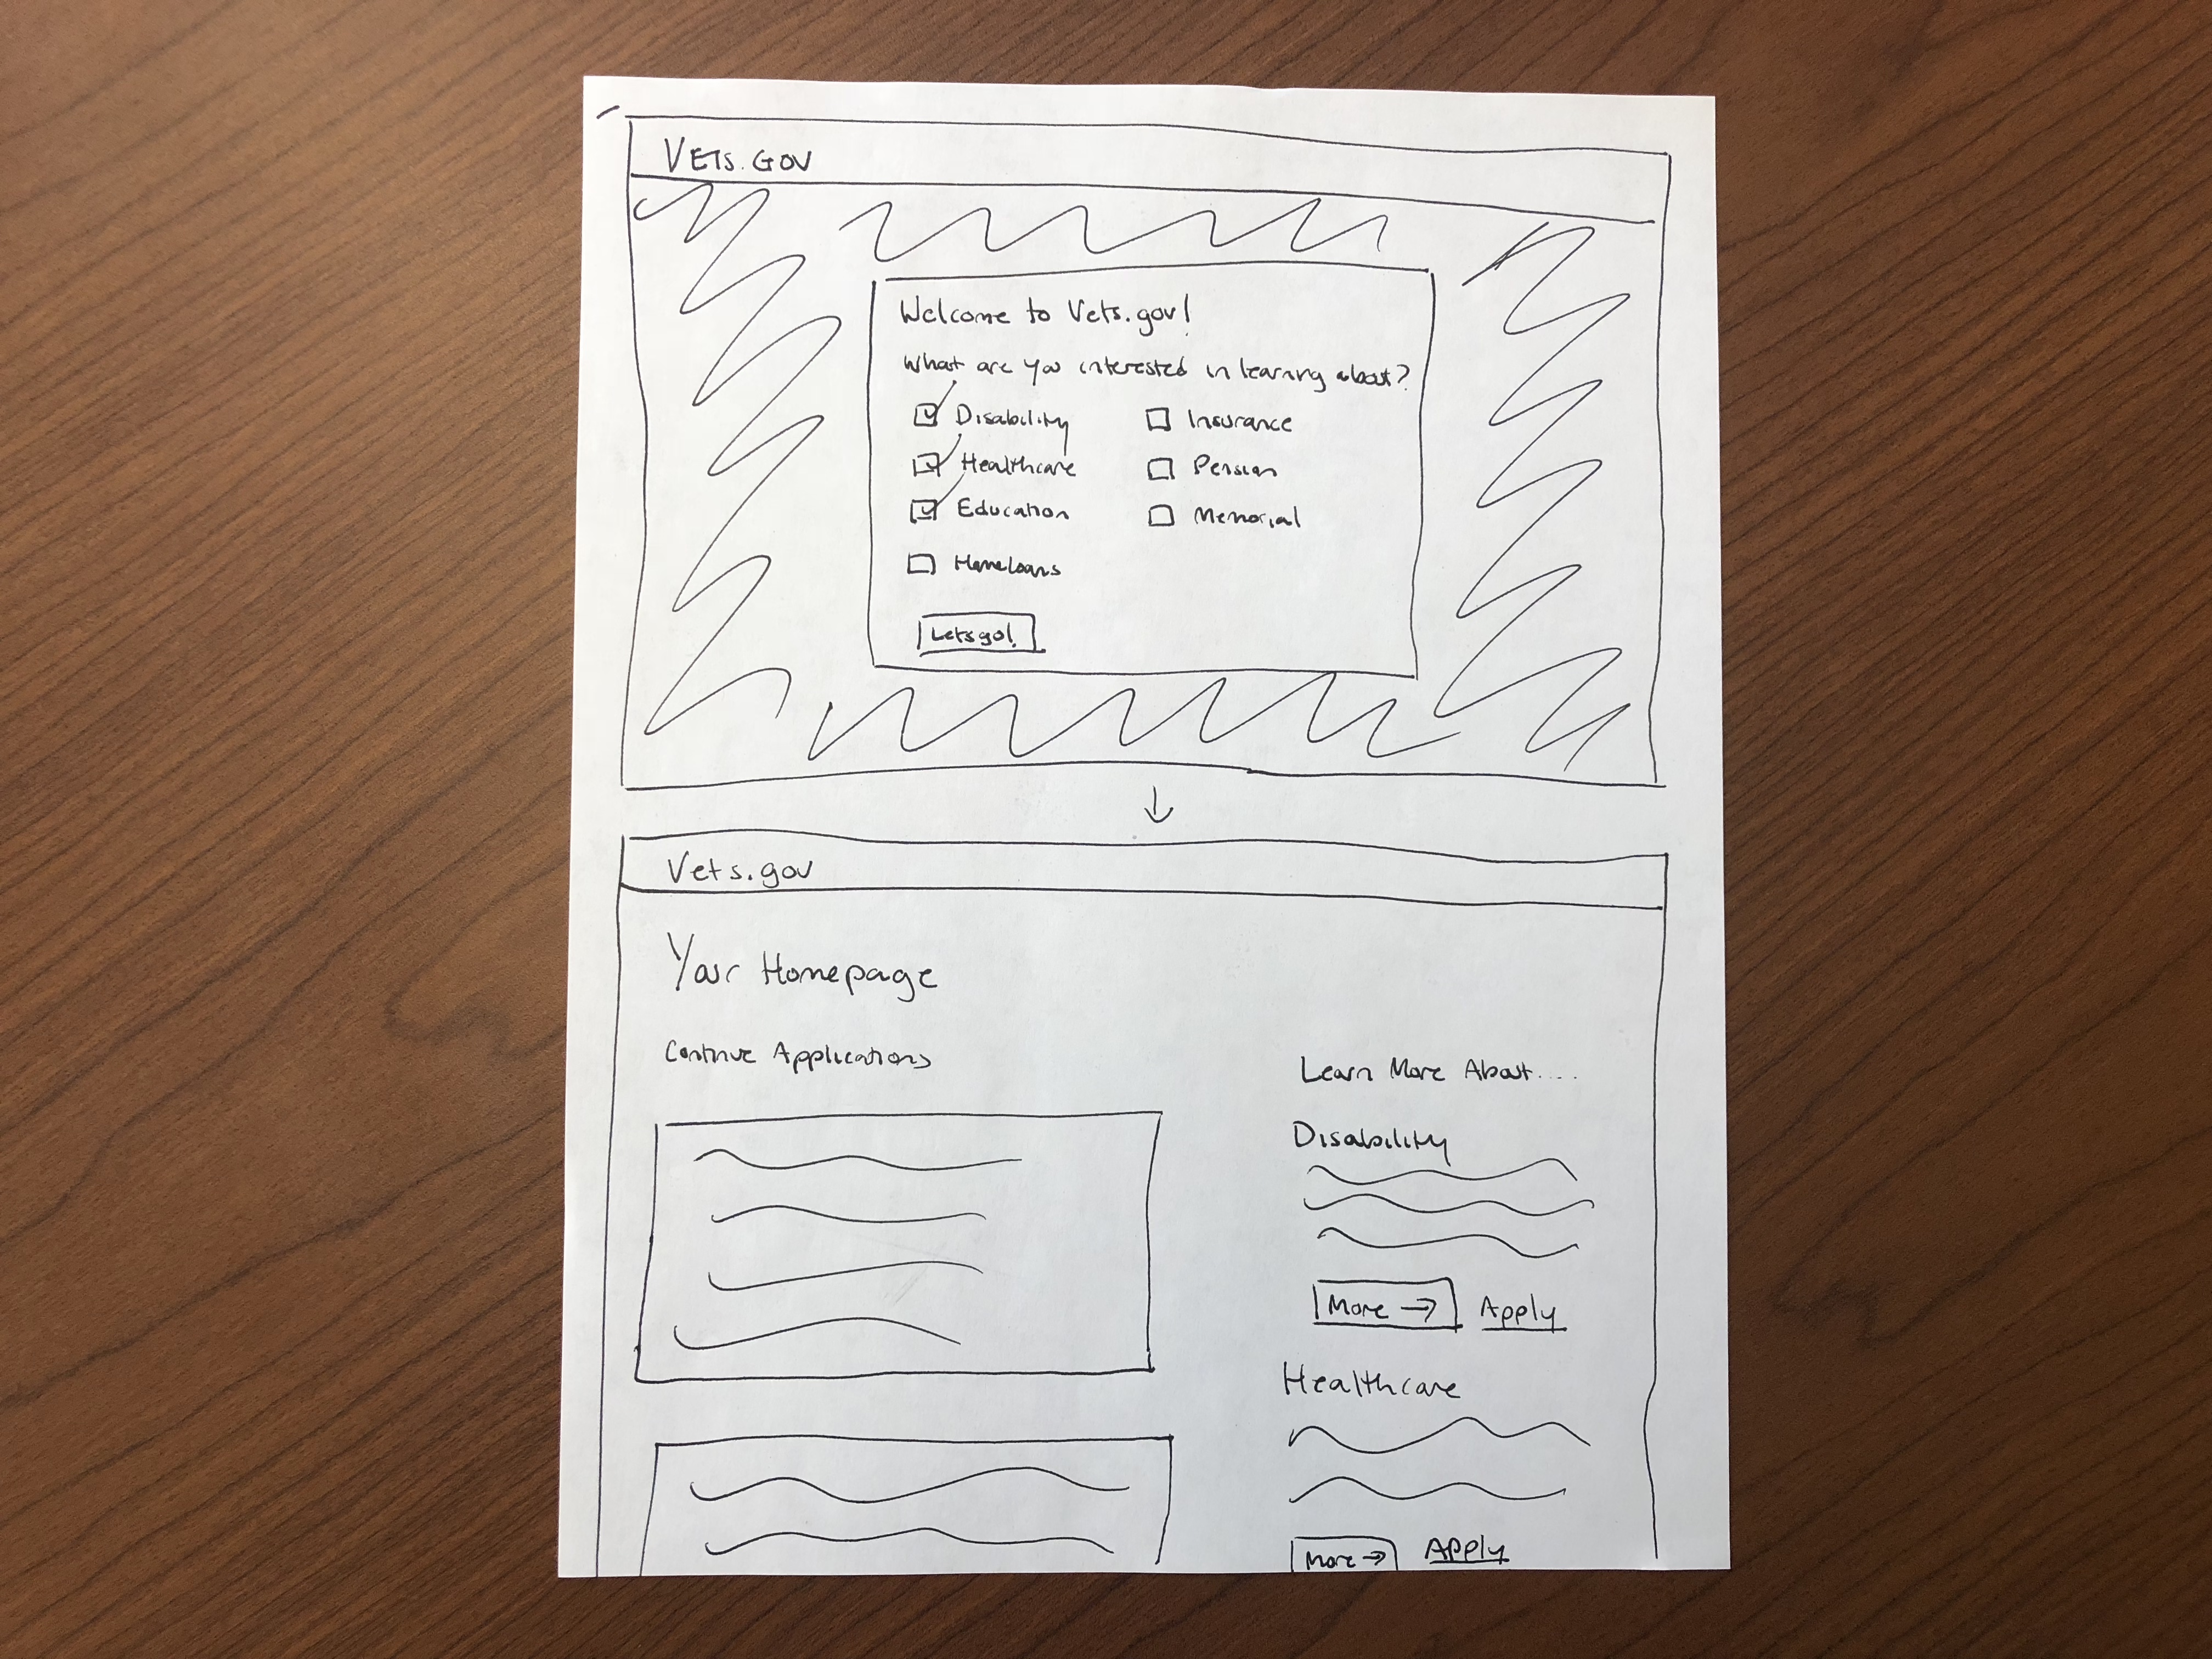 VETS.GOV
Welcome to Vets.gov!
What are you interested in learning about?
Disability Insurance
Healthcare Pension
Education Memorial
Homeloans
Letsgo!
Vets.gov
Your Homepage
Continue Applications
Learn More About....
Disability
More → Apply
Healthcare
More → Apply